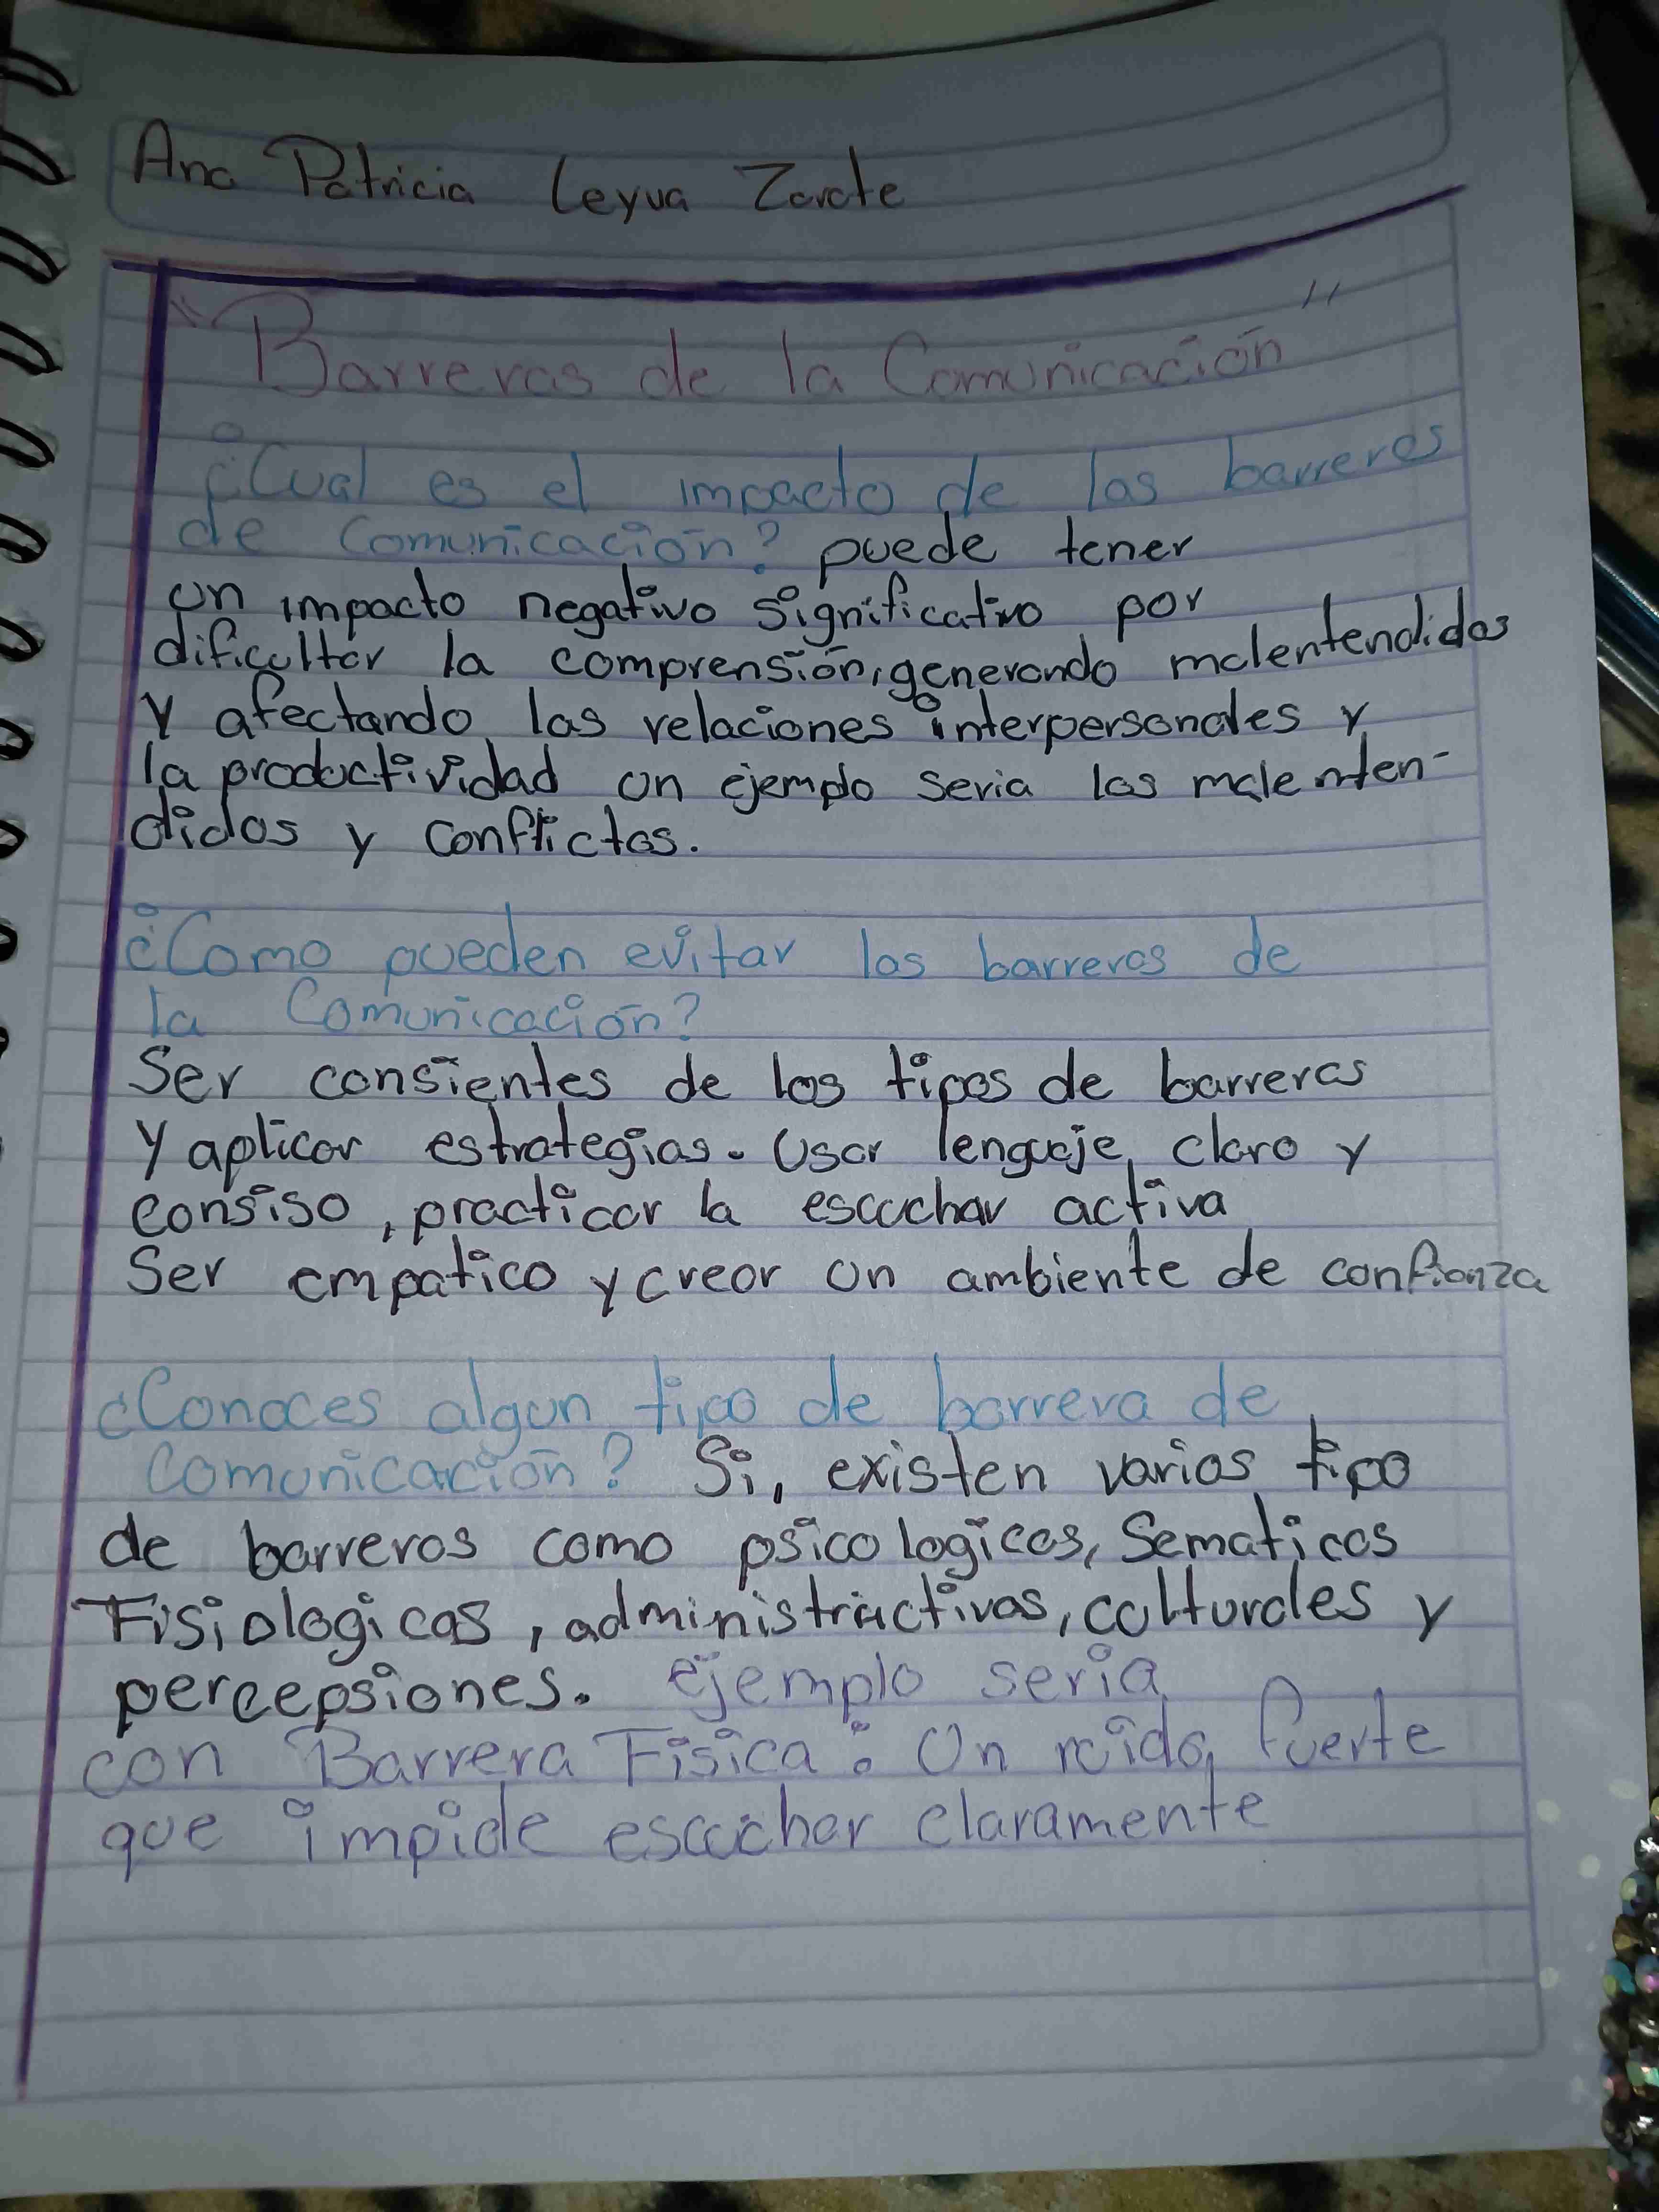 Ana Patricia Leyva Zarate
"Barreras de la Comunicación"
¿Cual es el impacto de las barreras
de comunicación? puede tener
un impacto negativo significativo por
dificultar la comprensión, generando malentendidos
y afectando las relaciones interpersonales y
la productividad un ejemplo seria los malenten-
didos y conflictos.
¿Como pueden evitar las barreras de
la Comunicación?
Ser consientes de los tipos de barreras
y aplicar estrategias. Usar lenguaje claro y
consiso, practicar la escuchar activa
Ser empatico y crear un ambiente de confianza
¿Conoces algun tipo de barrera de
comunicación? Si, existen varios tipo
de barreras como psicologicas, Sematicas
Fisiologicas, administractivas, culturales y
percepsiones. ejemplo seria
con Barrera Fisica: Un ruido fuerte
que impide escuchar claramente